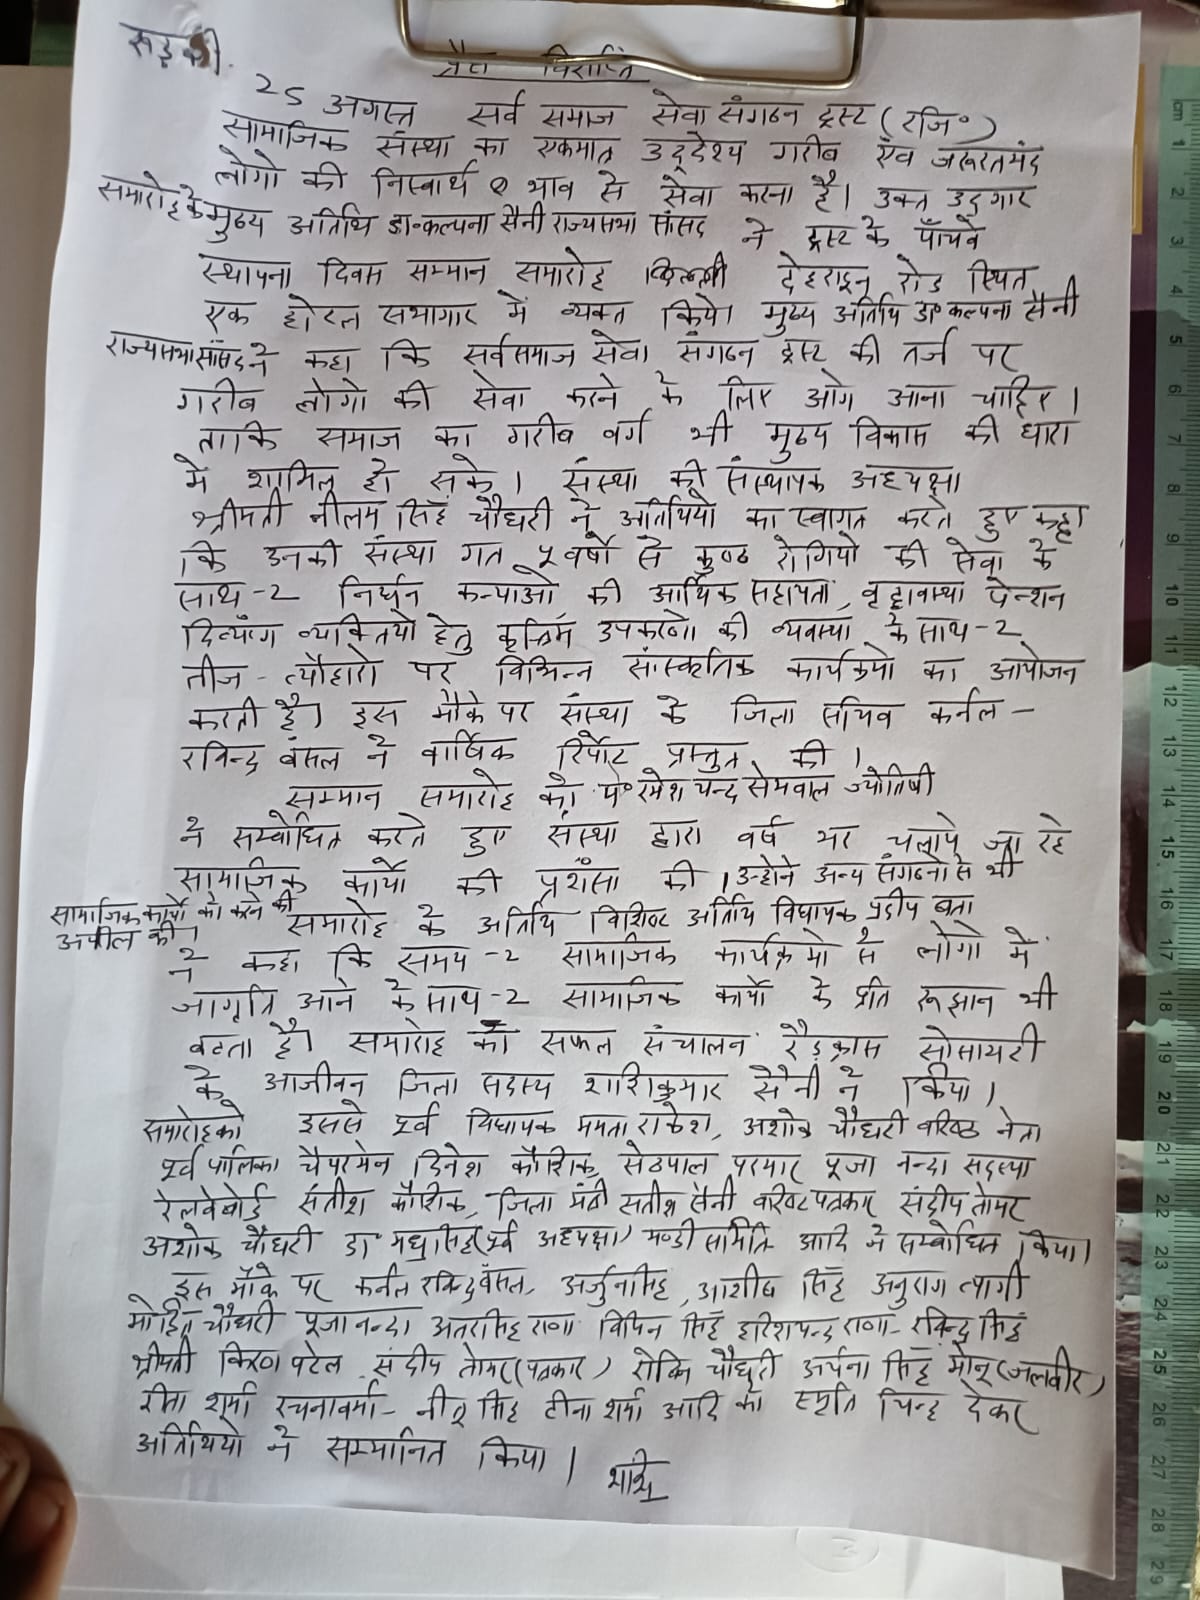 रूड़की.
प्रैस विज्ञप्ति
25 अगस्त सर्व समाज सेवा संगठन ट्रस्ट (रजि०)
सामाजिक संस्था का एकमात्र उद्देश्य गरीब एंव जरूरतमंद
लोगो की निस्वार्थ भाव से सेवा करना है। उक्त उद्गार
समारोह के मुख्य अतिथि डा०कल्पना सैनी राज्यसभा सांसद ने ट्रस्ट के पाँचवे
स्थापना दिवस सम्मान समारोह देहरादून रोड स्थित
एक होटल सभागार में व्यक्त किये। मुख्य अतिथि डा०कल्पना सैनी
राज्यसभा सांसद ने कहा कि सर्वसमाज सेवा संगठन ट्रस्ट की तर्ज पर
गरीब लोगो की सेवा करने के लिए आगे आना चाहिए।
ताकि समाज का गरीब वर्ग भी मुख्य विकास की धारा
में शामिल हो सके। संस्था की संस्थापक अध्यक्षा
श्रीमती नीलम सिंह चौधरी ने अतिथियो का स्वागत करते हुए कहा
कि उनकी संस्था गत ५ वर्षो से कुष्ठ रोगियो की सेवा के
साथ-2 निर्धन कन्याओ की आर्थिक सहायता, वृद्धावस्था पेन्शन
दिव्यांग व्यक्तियो हेतु कृत्रिम उपकरणो की व्यवस्था के साथ-2
तीज - त्यौहारो पर विभिन्न सांस्कृतिक कार्यक्रमो का आयोजन
करती है। इस मौके पर संस्था के जिला सचिव कर्नल -
रविन्द्र बंसल ने वार्षिक रिर्पोट प्रस्तुत की।
सम्मान समारोह को पं० रमेश चन्द सेमवाल ज्योतिषी
ने सम्बोधित करते हुए संस्था द्वारा वर्ष भर चलाये जा रहे
सामाजिक कार्यो की प्रशंसा की। उन्होने अन्य संगठनो से भी
सामाजिक कार्यो को करने की
अपील की।
समारोह के अतिथि विशिष्ट अतिथि विधायक प्रदीप बत्रा
ने कहा कि समय-2 सामाजिक कार्यक्रमो से लोगो में
जागृति आने के साथ-2 सामाजिक कार्यो के प्रति रूझान भी
बढता है। समारोह का सफल संचालन रैडक्रास सोसायटी
के आजीवन जिला सदस्य शशिकुमार सैनी ने किया।
समारोह को इससे पूर्व विधायक ममता राकेश, अशोक चौधरी वरिष्ठ नेता
पूर्व पालिका चैयरमेन दिनेश कौशिक, सेठपाल परमार पूजा नन्दा सदस्या
रेलवेबोर्ड सतीश कौशिक, जिला मंत्री सतीश सैनी वरिष्ठ पत्रकार संदीप तोमर
अशोक चौधरी डा मधुसिंह (पूर्व अध्यक्षा) मण्डी समिति आदि ने सम्बोधित किया।
इस मौके पर कर्नल रविन्द्र बंसल, अर्जुनसिंह, आशीष सिंह अनुराग त्यागी
मोहित चौधरी पूजा नन्दा अतरसिंह राणा विपिन सिंह हरिशचन्द राणा - रविन्द्र सिंह
श्रीमती किरण पटेल संदीप तोमर (पत्रकार) चौधरी अर्चना सिंह मोनू (जलवीर)
रीमा शर्मा रचना वर्मा - नीतू सिंह टीना शर्मा आदि को स्मृति चिन्ह देकर
अतिथियो ने सम्मानित किया।
शशि